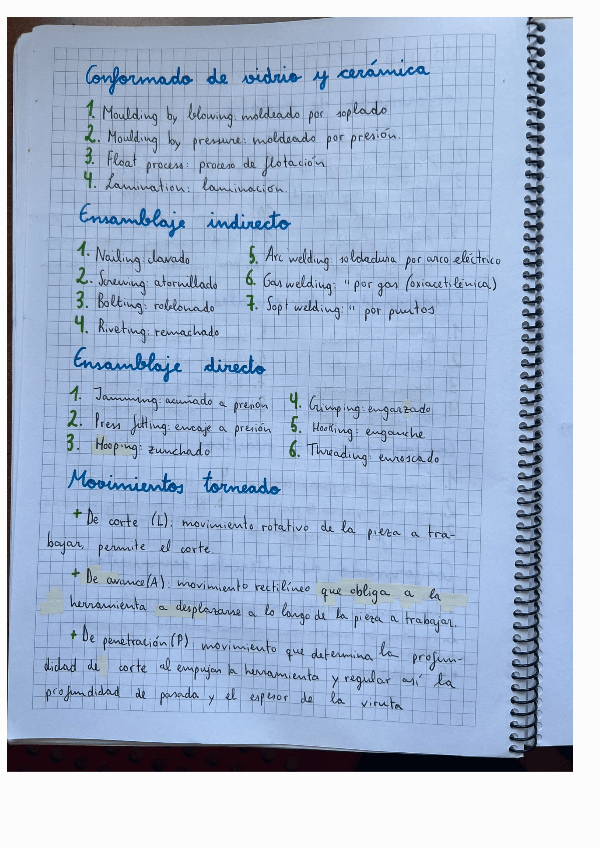 Conformado de vidrio y cerámica
1. Moulding by blowing: moldeado por soplado
2. Moulding by pressure: moldeado por presión.
3. Float process: proceso de flotación
4. Lamination: laminación.
Ensamblaje indirecto
1. Nailing: clavado
2. Screwing: atornillado
3. Bolting: roblonado
4. Riveting: remachado
5. Arc welding: soldadura por arco eléctrico
6. Gas welding: " por gas (oxiacetilénica)
7. Sopt welding: " por puntos
Ensamblaje directo
1. Jamming: acuñado a presión
2. Press fitting: encaje a presión
3. Hooping: zunchado
4. Crimping: engarzado
5. Hooking: enganche
6. Threading: enroscado
Movimientos torneado
+ De corte (L): movimiento rotativo de la pieza a tra-
bajar, permite el corte.
+ De avance (A): movimiento rectilíneo que obliga a la
herramienta a desplazarse a lo largo de la pieza a trabajar.
+ De penetración (P): movimiento que determina la profun-
didad de corte al empujar la herramienta y regular así la
profundidad de pasada y el espesor de la viruta